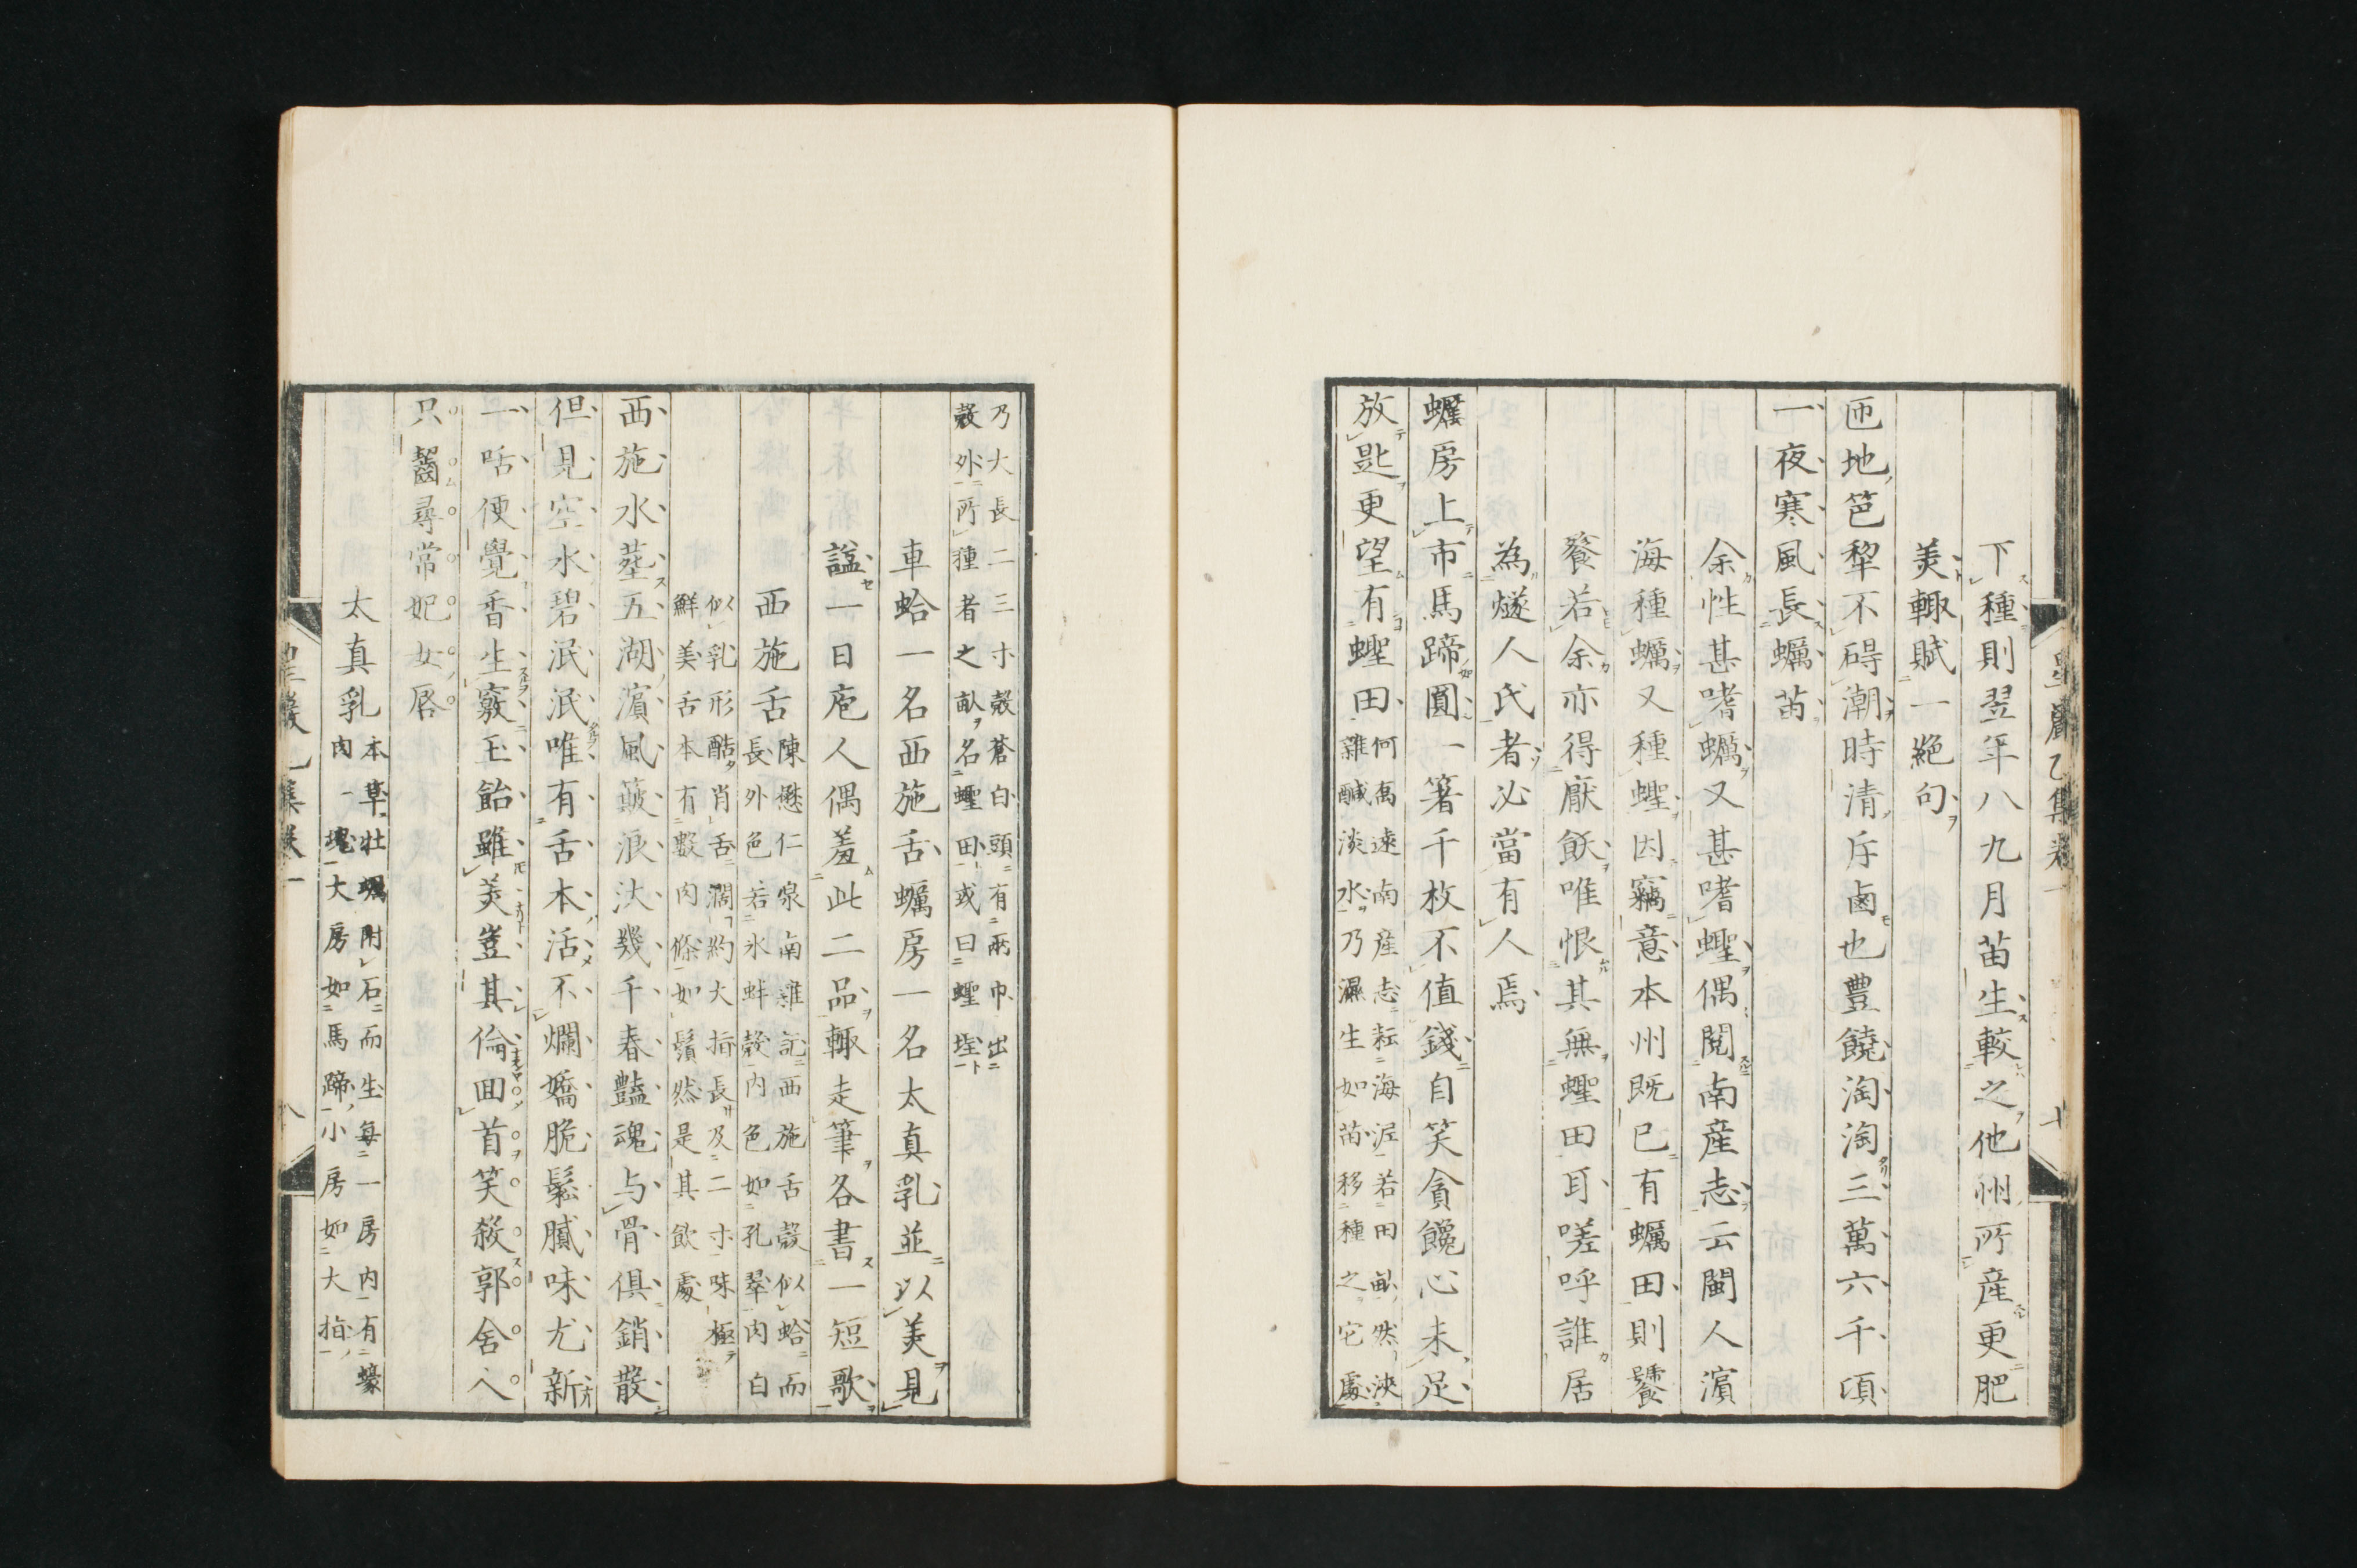 下種則翌年八九月苗生較之他州所産更肥
美輙賦一絶句
匝地笆犂不碍潮時清斥鹵也豊饒淘淘三萬六千頃
一夜寒風長蠣苗
余性甚嗜蠣又甚嗜蟶偶閲南産志云閩人濵
海種蠣又種蟶因竊意本州既已有蠣田則饕
餮若余亦得厭飫唯恨其無蟶田耳嗟呼誰居
為燧人氏者必當有人焉
蠣房上市馬蹄圓一箸千枚不值錢自笑貪饞心未足
放匙更望有蟶田
何喬遠南産志耘海泥若田畝然浹
雜鹹淡水乃濕生如苗移種之它處
乃大長二三寸殼蒼白頭有兩巾出
殼外所種者之畝名蟶田或曰蟶埕
車蛤一名西施舌蠣房一名太真乳並以美見
謚一日庖人偶羞此二品輙走筆各書一短歌
西施舌
陳懋仁泉南雜記西施舌殼似蛤而
長外色若氷蚌殼内色如孔翠肉白
似乳形酷肖舌濶約大指長及二寸味極
鮮美舌本有數肉條如鬚然是其飲處
西施水塟五湖濵風簸浪汏幾千春豔魂与骨俱銷散
但見空水碧泯泯唯有舌本活不爛嬌脆鬆膩味尤新
一咶便覺香生竅玉飴雖美豈其倫囬首笑殺郭舍人
只齧尋常妃女唇
太真乳
本草牡蠣附石而生每一房内有蠔
肉一塊大房如馬蹄小房如大指
星巖乙集卷一
七
八